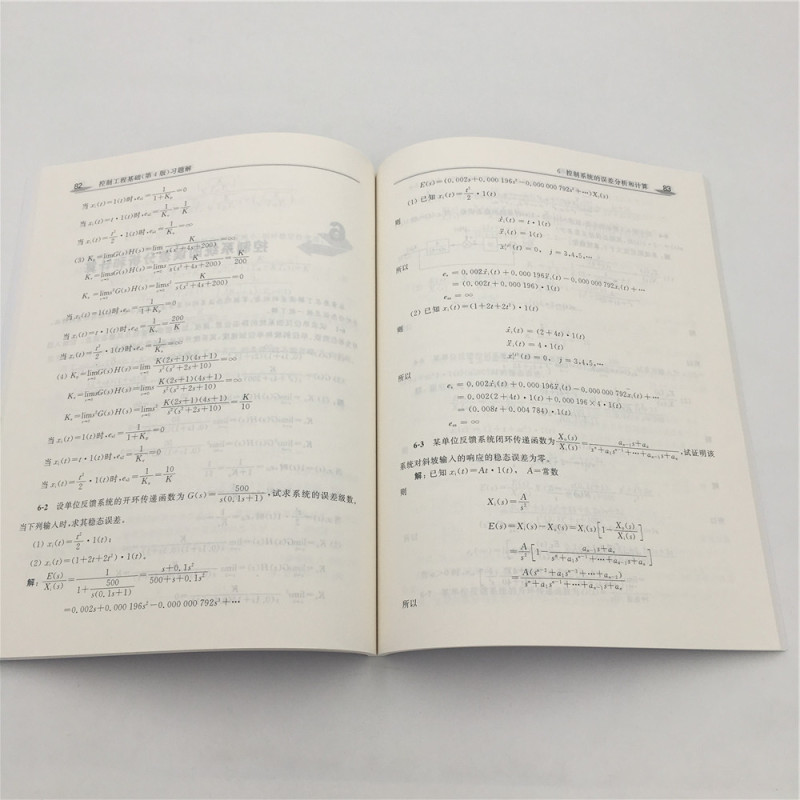 82 控制工程基础(第4版)习题解
当 x_i(t)=1(t)时,e_ss=1/(1+K_p)=0
当 x_i(t)=t·1(t)时,e_ss=1/K_v=1/K
当 x_i(t)=t²/2·1(t)时,e_ss=1/K_a=∞
(3) K_p=limG(s)H(s)=lim K/(s(s²+4s+200))=∞
K_v=limsG(s)H(s)=lims K/(s(s²+4s+200))=K/200
K_a=lims²G(s)H(s)=lims² K/(s(s²+4s+200))=0
当 x_i(t)=1(t)时,e_ss=1/(1+K_p)=0
当 x_i(t)=t·1(t)时,e_ss=1/K_v=200/K
当 x_i(t)=t²/2·1(t)时,e_ss=1/K_a=∞
(4) K_p=limG(s)H(s)=lim K(2s+1)(4s+1)/(s²(s²+2s+10))=∞
K_v=limsG(s)H(s)=lims K(2s+1)(4s+1)/(s²(s²+2s+10))=∞
K_a=lims²G(s)H(s)=lims² K(2s+1)(4s+1)/(s²(s²+2s+10))=K/10
当 x_i(t)=1(t)时,e_ss=1/(1+K_p)=0
当 x_i(t)=t·1(t)时,e_ss=1/K_v=0
当 x_i(t)=t²/2·1(t)时,e_ss=1/K_a=10/K
6-2 设单位反馈系统的开环传递函数为 G(s)=500/(s(0.1s+1)),试求系统的误差级数,
当下列输入时,求其稳态误差。
(1) x_i(t)=t²/2·1(t);
(2) x_i(t)=(1+2t+2t²)·1(t)。
解:E(s)/X_i(s)=1/(1+500/(s(0.1s+1)))=(s+0.1s²)/(500+s+0.1s²)
=0.002s+0.000196s²-0.000000792s³+⋯
6 控制系统的误差分析和计算 83
E(s)=(0.002s+0.000196s²-0.000000792s³+⋯)X_i(s)
(1) 已知 x_i(t)=t²/2·1(t)
则
ẋ_i(t)=t·1(t)
ẍ_i(t)=1(t)
x_i^(j)(t)=0, j=3,4,5,⋯
所以
e_s=0.002ẋ_i(t)+0.000196ẍ_i(t)-0.000000792x⃛_i(t)+⋯
=(0.002t+0.000196)·1(t)
e_ss=∞
(2) 已知 x_i(t)=(1+2t+2t²)·1(t)
则
ẋ_i(t)=(2+4t)·1(t)
ẍ_i(t)=4·1(t)
x_i^(j)(t)=0, j=3,4,5,⋯
所以
e_s=0.002ẋ_i(t)+0.000196ẍ_i(t)-0.000000792x⃛_i(t)+⋯
=0.002(2+4t)·1(t)+0.000196×4·1(t)
=(0.008t+0.004784)·1(t)
e_ss=∞
6-3 某单位反馈系统闭环传递函数为X_o(s)/X_i(s)=(a_{n-1}s+a_n)/(s^n+a_1s^{n-1}+⋯+a_{n-1}s+a_n),试证明该
系统对斜坡输入的响应的稳态误差为零。
解:已知 x_i(t)=At·1(t), A=常数
则
X_i(s)=A/s²
E(s)=X_i(s)-X_o(s)=X_i(s)[1-X_o(s)/X_i(s)]
=A/s²[1-(a_{n-1}s+a_n)/(s^n+a_1s^{n-1}+⋯+a_{n-1}s+a_n)]
=A(s^{n-2}+a_1s^{n-3}+⋯+a_{n-2})/(s^n+a_1s^{n-1}+⋯+a_{n-1}s+a_n)
所以